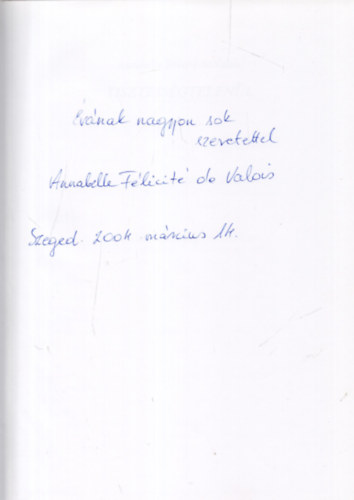 Évának nagyon sok
szeretettel
Annabelle Félicité de Valois
Szeged. 2004. március 14.